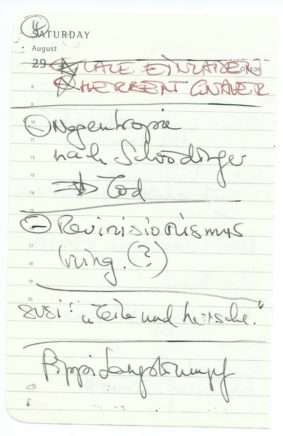 4
SATURDAY
August
29 LALE EINLADEN
HERBERT
Negentropie
nach Schrödinger
Tod
Revisionismus
(?)
SUSI: "Teile und herrsche."
Pippi Langstrumpf